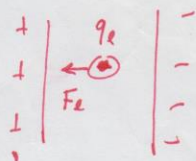 + qₑ -
+ -
Fₑ
+ -
-